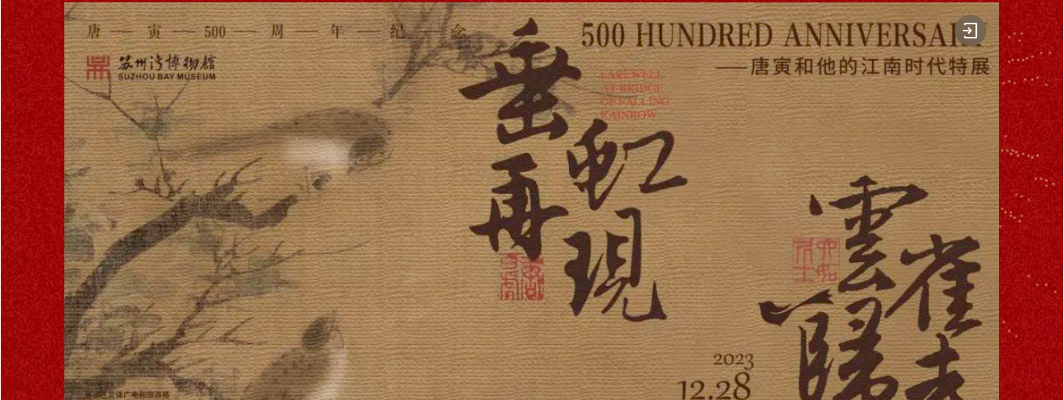 唐 — 寅 — 500 — 周 — 年 — 纪 — 念
500 HUNDRED ANNIVERSARY
苏州湾博物馆
SUZHOU BAY MUSEUM
——唐寅和他的江南时代特展
FAREWELL
AT BRIDGE
OF FALLING
RAINBOW
垂虹
再現
雲雀
歸來
2023
12.28